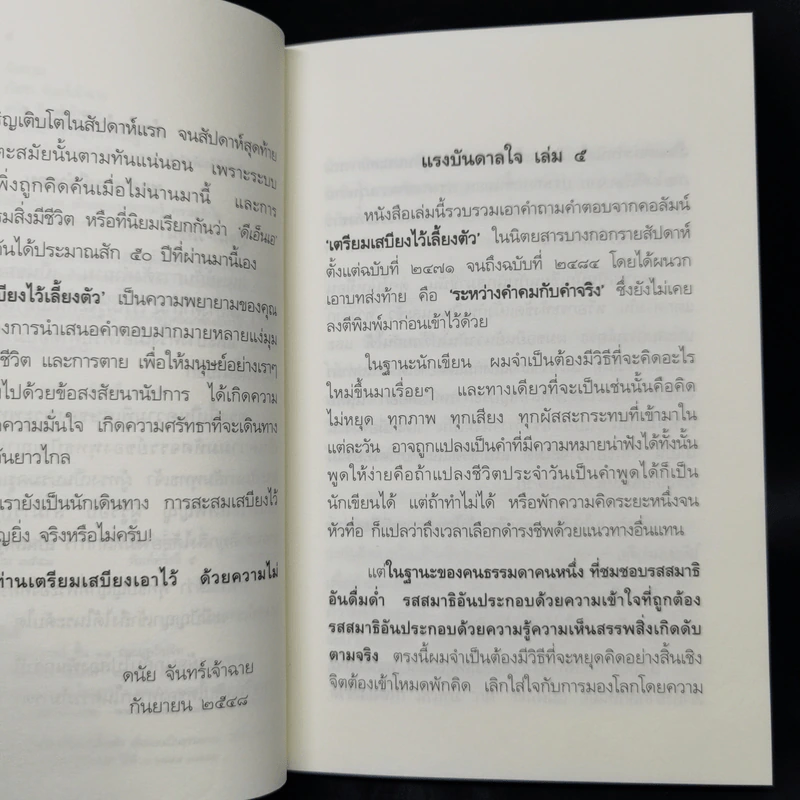 ริญเติบโตในสัปดาห์แรก จนสัปดาห์สุดท้าย
ตะสมัยนั้นตามทันแน่นอน เพราะระบบ
พิ่งถูกคิดค้นเมื่อไม่นานมานี้ และการ
รมสิ่งมีชีวิต หรือที่นิยมเรียกกันว่า ‘ดีเอ็นเอ’
กันได้ประมาณสัก ๕๐ ปีที่ผ่านมานี้เอง
บียงไว้เลี้ยงตัว’ เป็นความพยายามของคุณ
องการนำเสนอคำตอบมากมายหลายแง่มุม
ชีวิต และการตาย เพื่อให้มนุษย์อย่างเราๆ
มไปด้วยข้อสงสัยนานัปการ ได้เกิดความ
ความมั่นใจ เกิดความศรัทธาที่จะเดินทาง
อันยาวไกล
เรายังเป็นนักเดินทาง การสะสมเสบียงไว้
ญยิ่ง จริงหรือไม่ครับ!
ท่านเตรียมเสบียงเอาไว้ ด้วยความไม่
ดนัย จันทร์เจ้าฉาย
กันยายน ๒๕๔๘
แรงบันดาลใจ เล่ม ๕
หนังสือเล่มนี้รวบรวมเอาคำถามคำตอบจากคอลัมน์
‘เตรียมเสบียงไว้เลี้ยงตัว’ ในนิตยสารบางกอกรายสัปดาห์
ตั้งแต่ฉบับที่ ๒๔๗๑ จนถึงฉบับที่ ๒๔๘๔ โดยได้ผนวก
เอาบทส่งท้าย คือ ‘ระหว่างคำคมกับคำจริง’ ซึ่งยังไม่เคย
ลงตีพิมพ์มาก่อนเข้าไว้ด้วย
ในฐานะนักเขียน ผมจำเป็นต้องมีวิธีที่จะคิดอะไร
ใหม่ขึ้นมาเรื่อยๆ และทางเดียวที่จะเป็นเช่นนั้นคือคิด
ไม่หยุด ทุกภาพ ทุกเสียง ทุกผัสสะกระทบที่เข้ามาใน
แต่ละวัน อาจถูกแปลงเป็นคำที่มีความหมายน่าฟังได้ทั้งนั้น
พูดให้ง่ายคือถ้าแปลงชีวิตประจำวันเป็นคำพูดได้ก็เป็น
นักเขียนได้ แต่ถ้าทำไม่ได้ หรือพักความคิดระยะหนึ่งจน
หัวทื่อ ก็แปลว่าถึงเวลาเลือกดำรงชีพด้วยแนวทางอื่นแทน
แต่ในฐานะของคนธรรมดาคนหนึ่ง ที่ชมชอบรสสมาธิ
อันดื่มด่ำ รสสมาธิอันประกอบด้วยความเข้าใจที่ถูกต้อง
รสสมาธิอันประกอบด้วยความรู้ความเห็นสรรพสิ่งเกิดดับ
ตามจริง ตรงนี้ผมจำเป็นต้องมีวิธีที่จะหยุดคิดอย่างสิ้นเชิง
จิตต้องเข้าโหมดพักคิด เลิกใส่ใจกับการมองโลกโดยความ